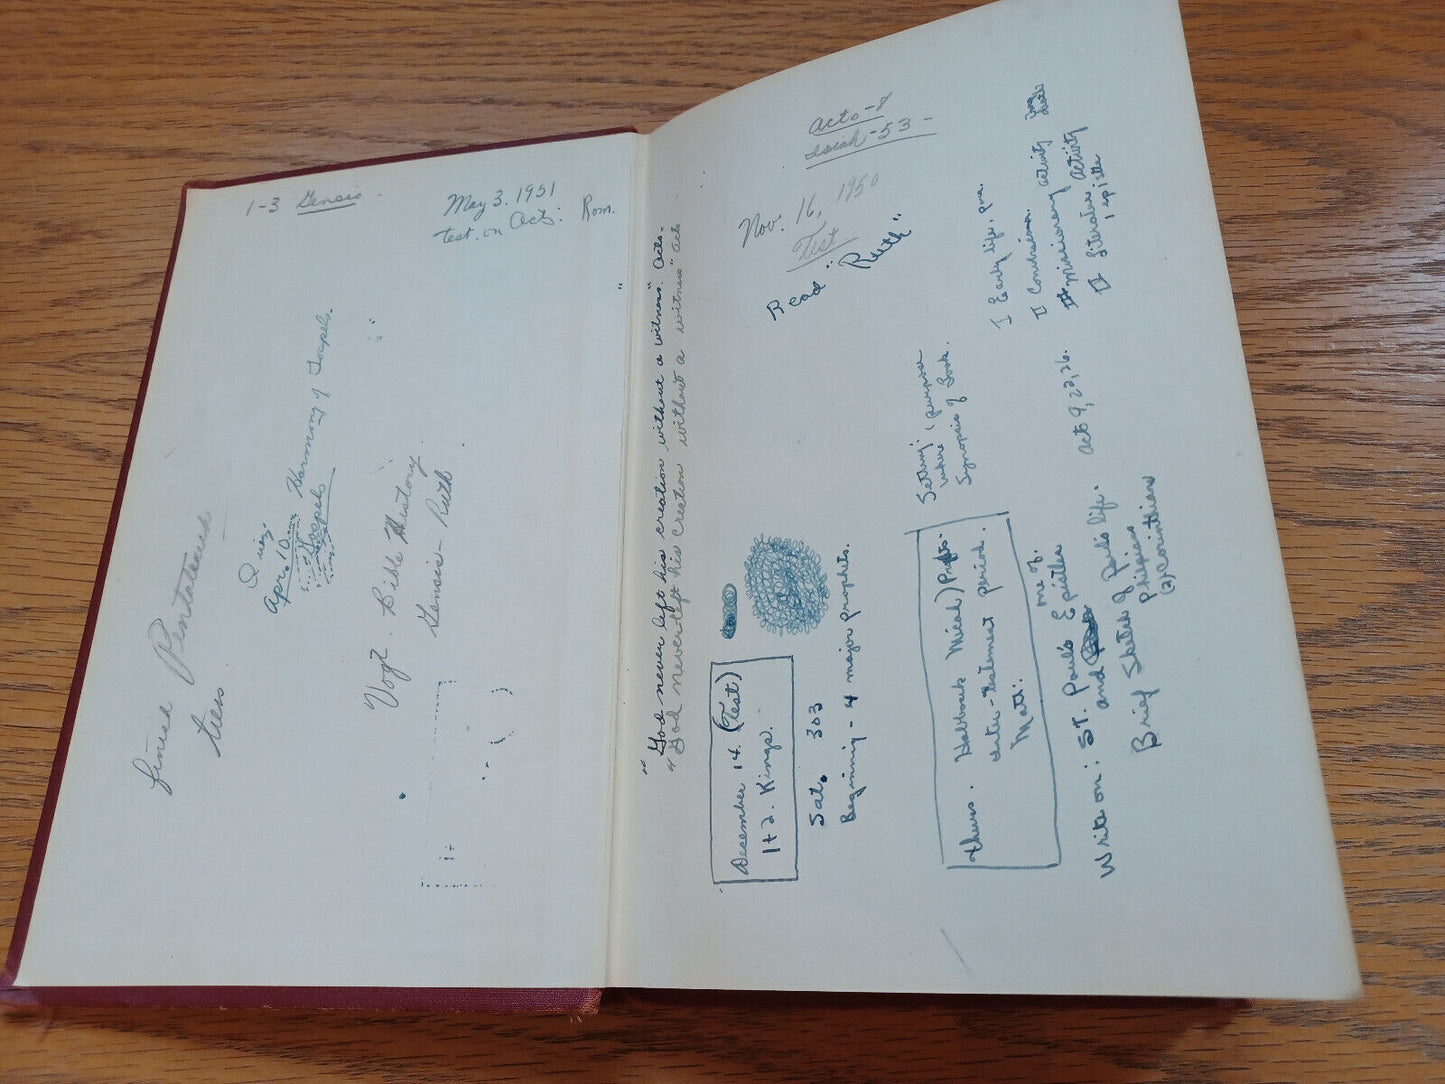 1-3 Genesis -
May 3. 1951
test. on Acts: Rom.
Quiz
Apr. 10 - Harmony of Gospels.
Gospels
finish Pentateuch
Vogt. Bible History
Genesis - Ruth
1+
"God never left his creation without a witness" Acts.
"God never left his creation without a witness" Acts
Acts-8
Isaiah-53-
Nov. 16, 1950
Test
Read "Ruth"
December 14. (Test)
1+2. Kings.
Sat. 303
Beginning - 4 major prophets.
Setting, purpose
where
Synopsis of book.
thurs. Habbauk Micah) Profts.
inter-testament period.
Math:
I Early life,
II Conversion.
III missionary activity
IV literature activity
epistles
one of.
Write on: ST. Paul's Epistles
and
Brief Sketch of Paul's life. Acts 9,22,26.
Philipians
(2) Corinthians